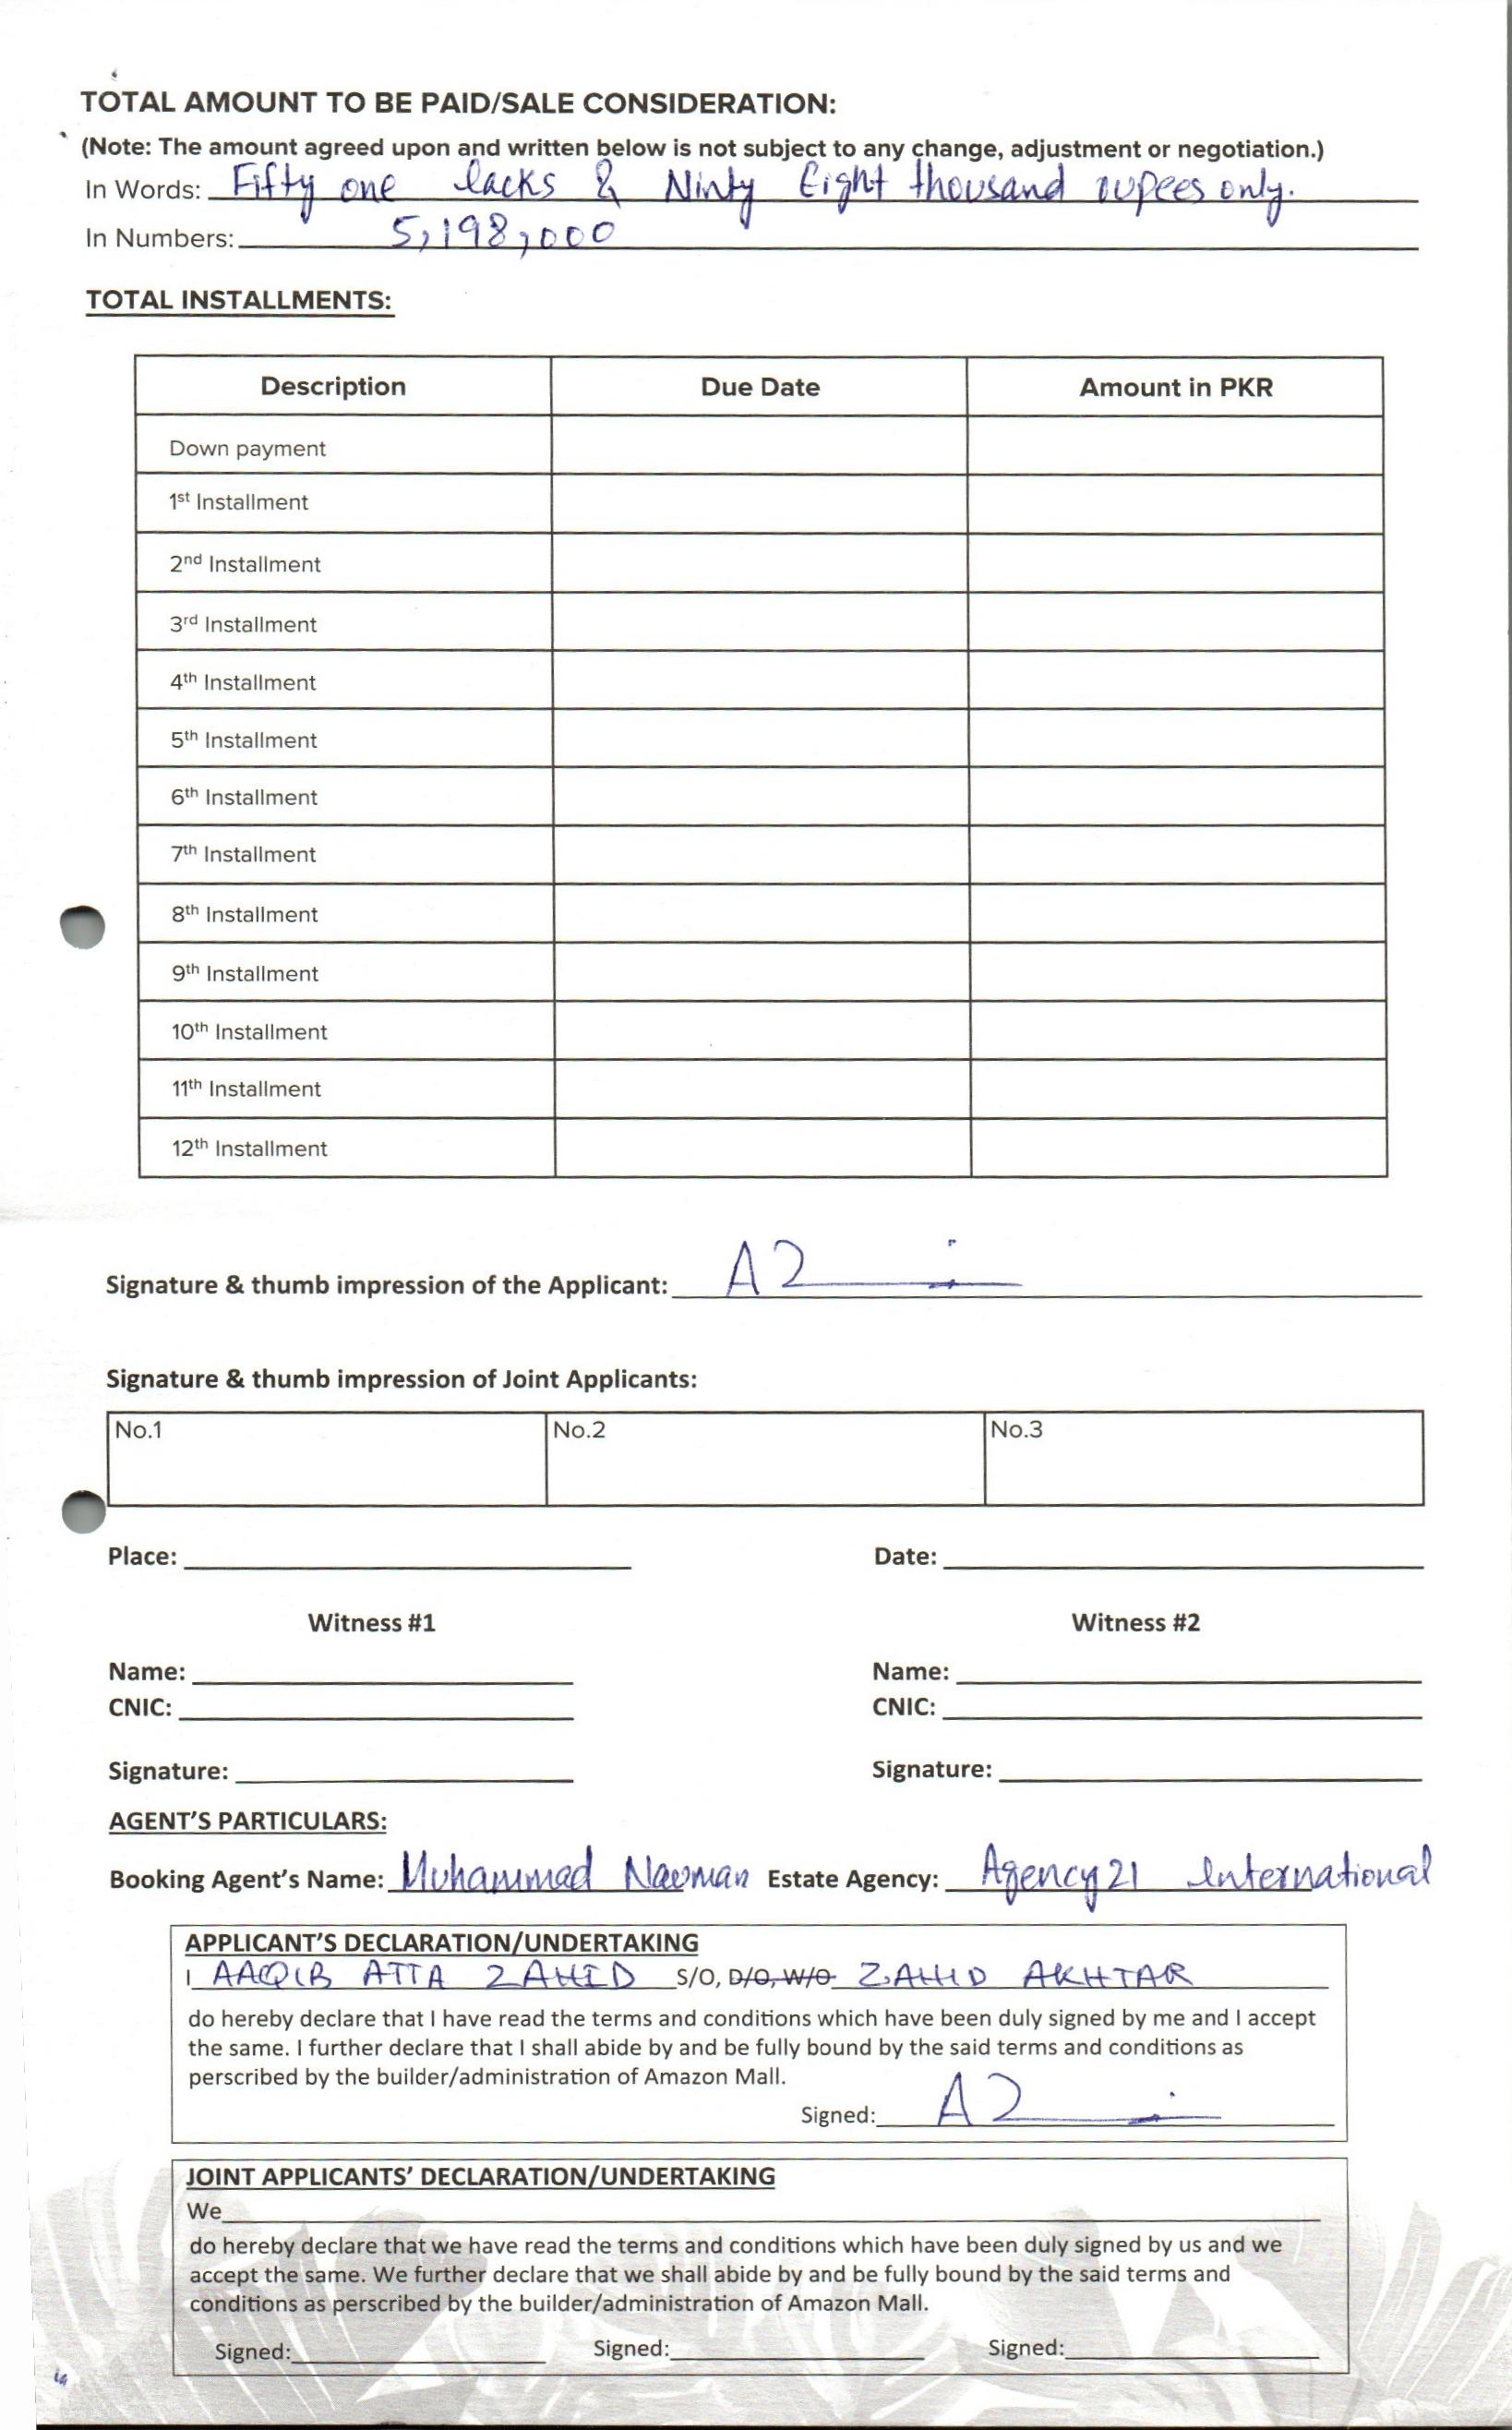 TOTAL AMOUNT TO BE PAID/SALE CONSIDERATION:
(Note: The amount agreed upon and written below is not subject to any change, adjustment or negotiation.)
In Words: Fifty one lacks & Ninty Eight thousand rupees only.
In Numbers: 5,198,000
TOTAL INSTALLMENTS:
Description Due Date Amount in PKR
Down payment
1st Installment
2nd Installment
3rd Installment
4th Installment
5th Installment
6th Installment
7th Installment
8th Installment
9th Installment
10th Installment
11th Installment
12th Installment
Signature & thumb impression of the Applicant: AZ
Signature & thumb impression of Joint Applicants:
No.1 No.2 No.3
Place: Date:
Witness #1 Witness #2
Name: Name:
CNIC: CNIC:
Signature: Signature:
AGENT'S PARTICULARS:
Booking Agent's Name: Muhammad Nauman Estate Agency: Agency21 International
APPLICANT'S DECLARATION/UNDERTAKING
I AAQIB ATTA ZAHID S/O, D/O, W/O ZAHID AKHTAR
do hereby declare that I have read the terms and conditions which have been duly signed by me and I accept
the same. I further declare that I shall abide by and be fully bound by the said terms and conditions as
perscribed by the builder/administration of Amazon Mall.
Signed: AZ
JOINT APPLICANTS' DECLARATION/UNDERTAKING
We
do hereby declare that we have read the terms and conditions which have been duly signed by us and we
accept the same. We further declare that we shall abide by and be fully bound by the said terms and
conditions as perscribed by the builder/administration of Amazon Mall.
Signed: Signed: Signed: